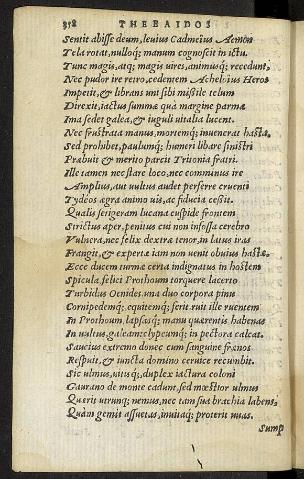 358 THEBAIDOS
Sentit abisse deum, leuius Cadmeius Aemon
Tela rotat, nullóq; manum cognoscit in ictu.
Tunc magis, atq; magis uires, animusq; recedunt,
Nec pudor ire retro. cedentem Acheloius Heros
Impetit, & librans uni sibi missile telum
Direxit, iactus summæ quà margine parmæ
Ima sedet galea, & iuguli uitalia lucent.
Nec frustrata manus, mortemq; inuenerat hasta,
Sed prohibet, paulumq; humeri libare sinistri
Præbuit & merito parcit Tritonia fratri.
Ille tamen nec stare loco, nec comminus ire
Amplius, aut uultus audet perferre cruenti
Tydeos ægra animo uis, ac fiducia cessit.
Qualis setigeram lucana cuspide frontem
Strictus aper, penitus cui non infossa cerebro
Vulnera, nec felix dextræ tenor, in latus iras
Frangit, & expertæ iam non uenit obuius hastæ.
Ecce ducem turmæ certa indignatus in hostem
Spicula felici Prothoum torquere lacerto
Turbidus Oenides, una duo corpora pinu
Cornipedemq;, equitemq; ferit. ruit ille ruentem
In Prothoum, lapsasq; manu quærentis habenas
In uultus, galeam clypeumq; in pectora calcat.
Saucius extremo donec cum sanguine frænos
Respuit, & iuncta domino ceruice recumbit.
Sic ulmus, uitisq;, duplex iactura coloni
Gaurano de monte cadunt, sed mœstior ulmus
Quærit utrunq; nemus, nec tam sua brachia labens,
Quàm gemit assuetas, inuitaq; proterit uuas.
Sump